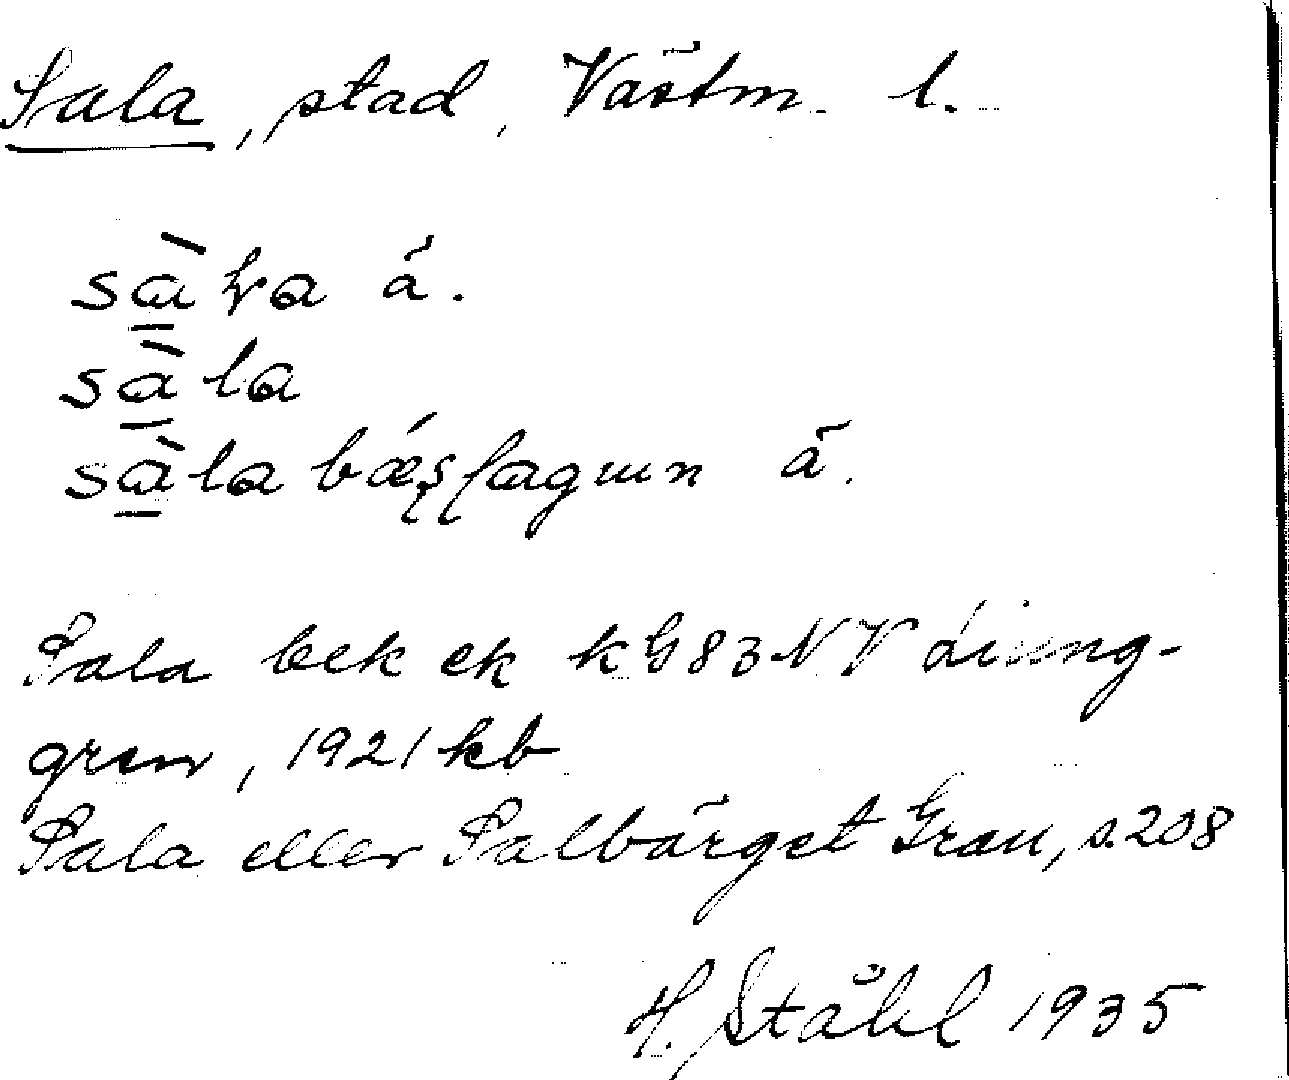 Sala, stad, Västm. l.
sàɽa ä.
sàla
sàla bǽʂʃagɯn ä.
Sala bek ek k G 83 NV Liung-
gren, 1921 kb
Sala eller Salbärget Grau, s. 208
H. Ståhl 1935